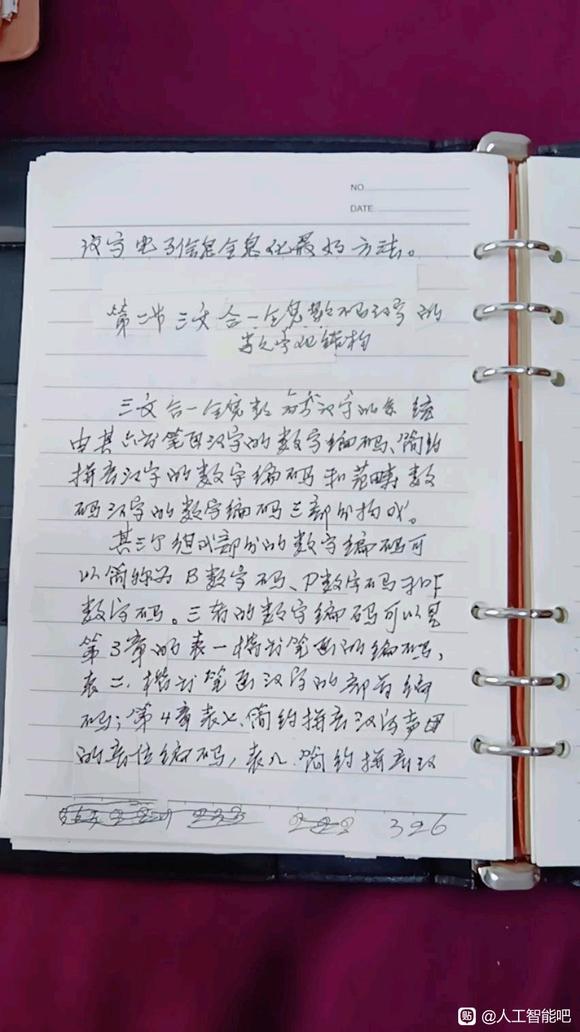 NO.
DATE:
汉字电子信息全息化最好方法。
第二节 三文合一全息数码汉字的
字结构
三文合一全息数码汉字的系统
由其六书笔画汉字的数字编码、简约
拼音汉字的数字编码和范畴数
码汉字的数字编码三部分构成。
其三个组成部分的数字编码可
以简称为B数字码、P数字码和F
数字码。三者的数字编码可以见
第3章的表一楷书笔画的编码,
表二.楷书笔画汉字的部首编
码;第4章表七.简约拼音汉语声母
的音位编码,表八.简约拼音汉
222 326
@人工智能吧